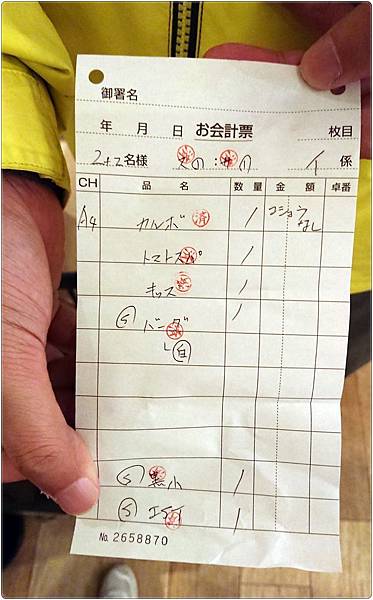 御署名
年 月 日 お会計票 枚目
2+2名様 イ 係
CH 品名 数量 金額 卓番
A4 カルボ 済 1 コショウなし
トマト 1
キッズ 1
S バーグ 1
└ 白
S 黒小 1
S 1
No. 2658870